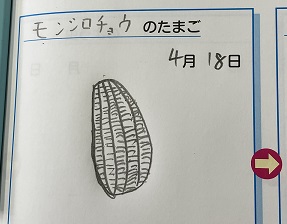 モンシロチョウのたまご
4月18日